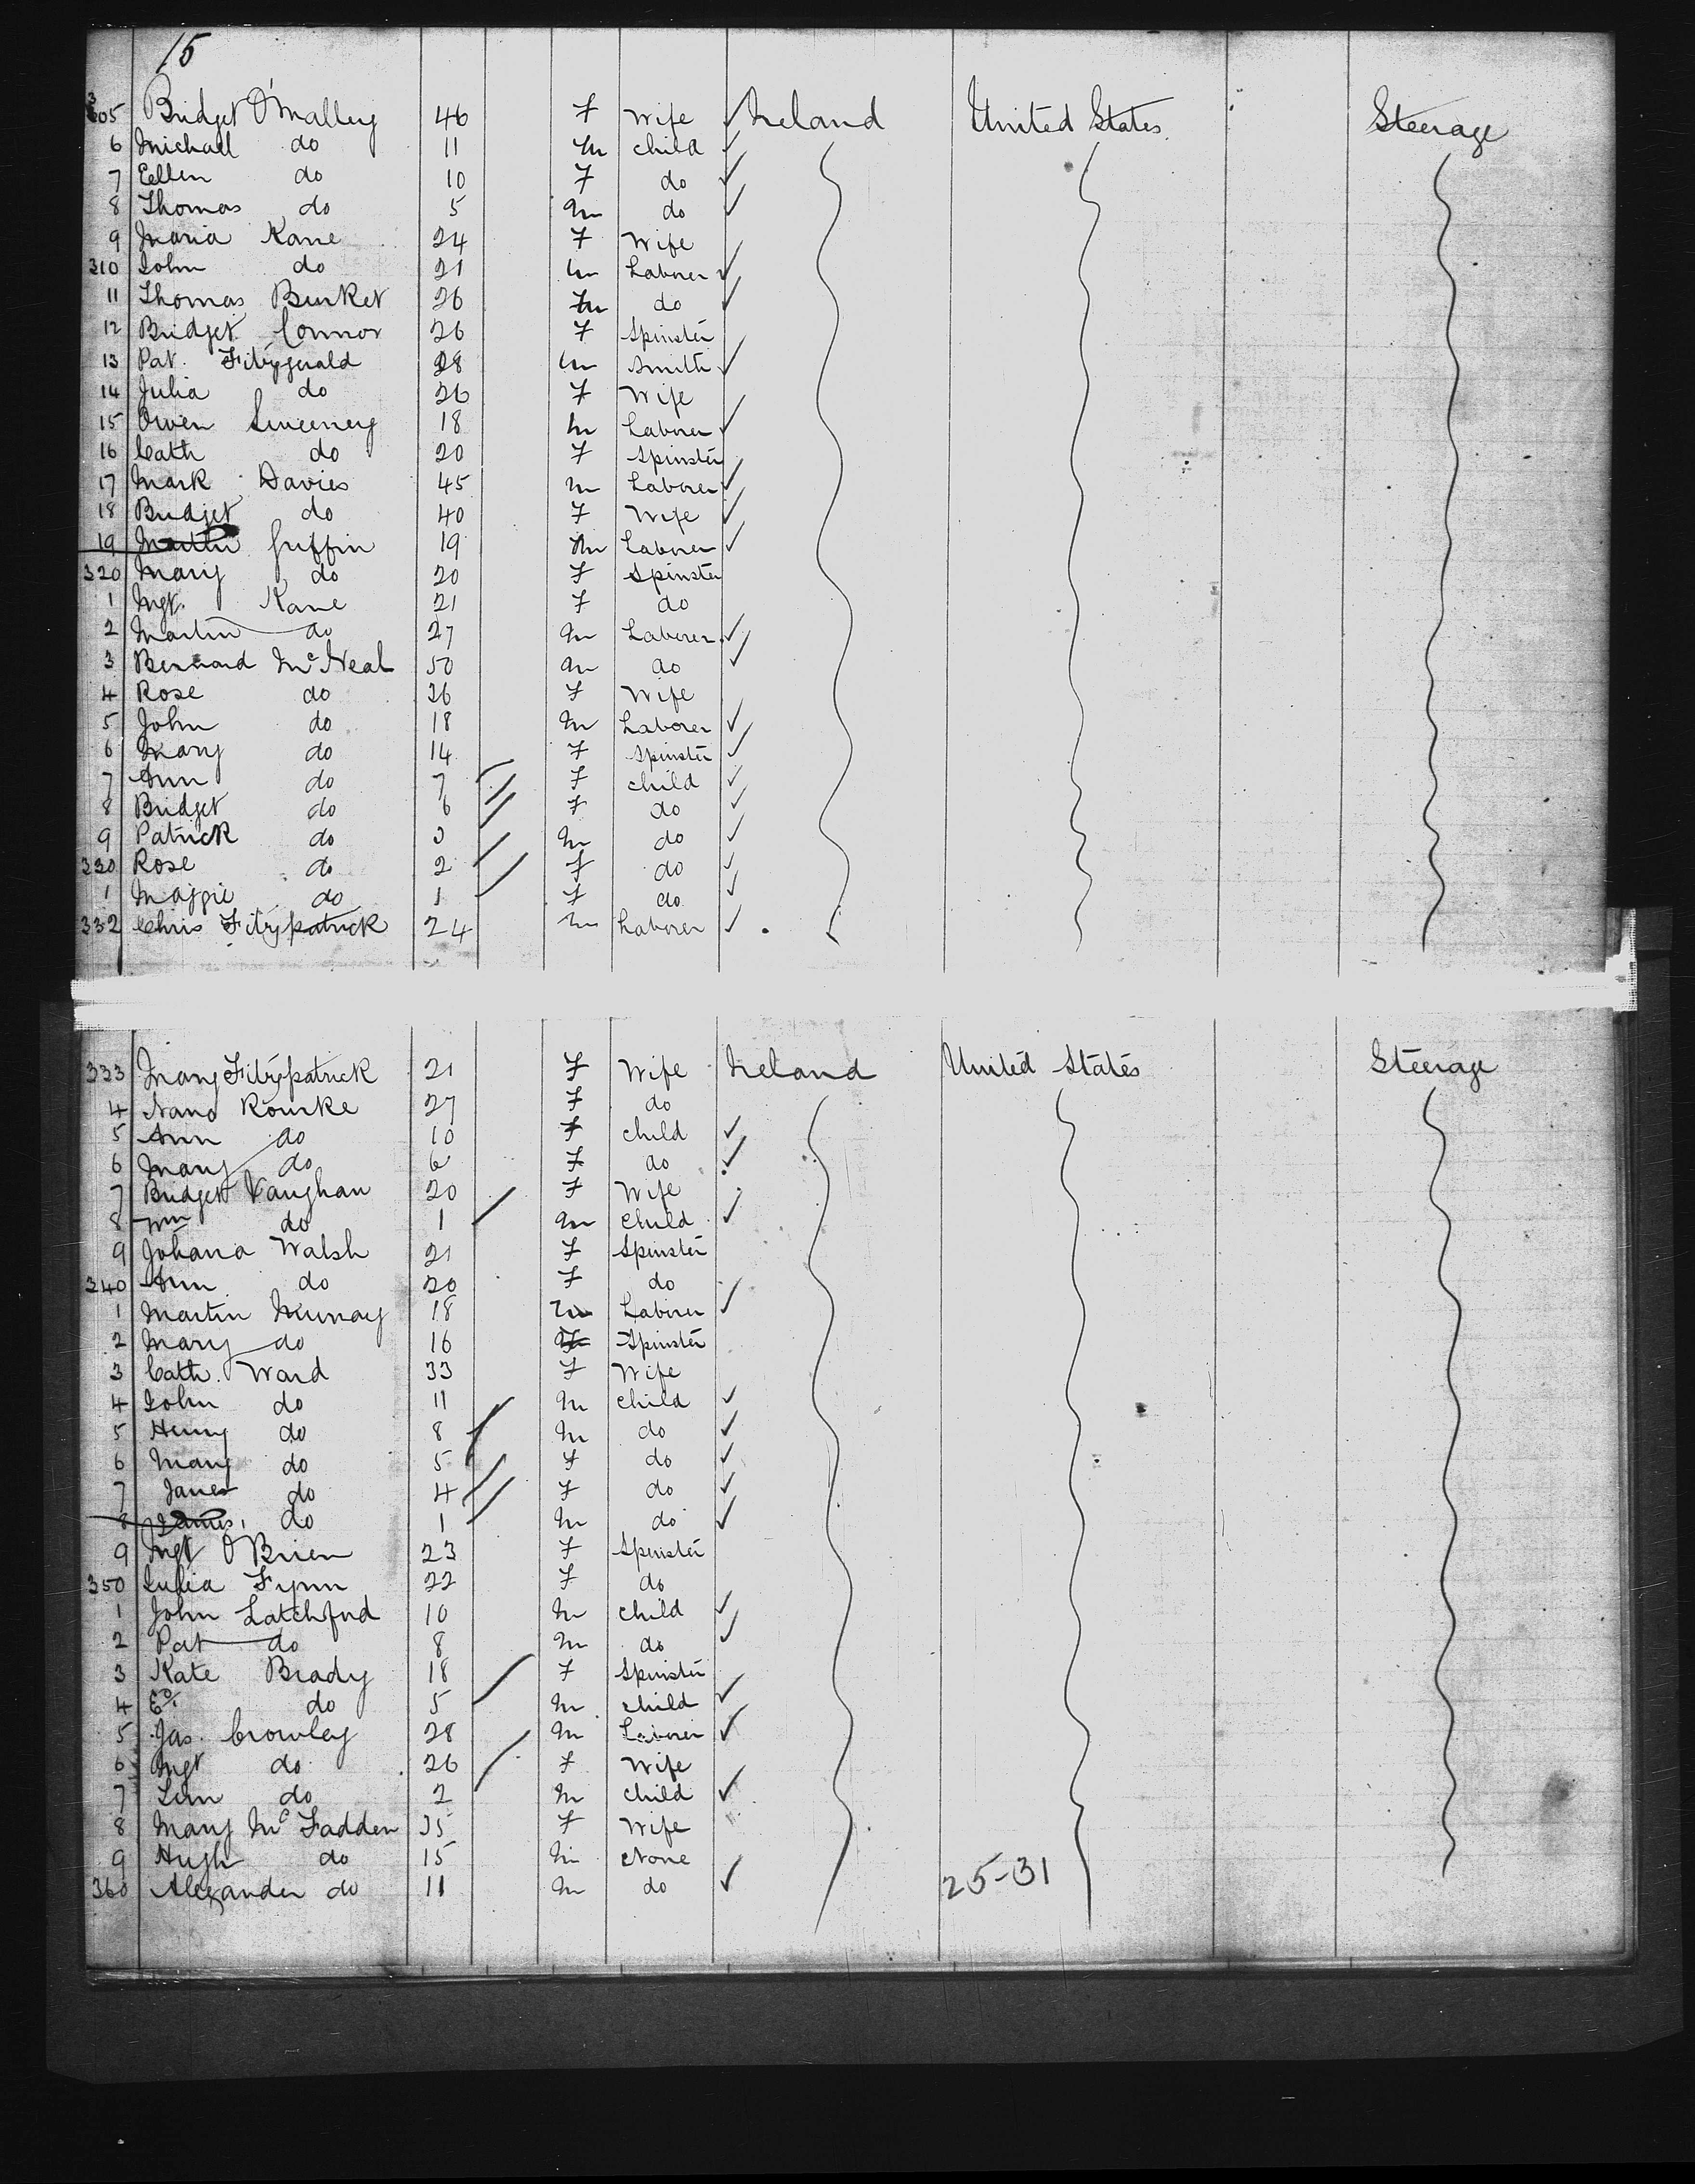 15
305 Bridget O'Malley 46 F Wife Ireland United States Steerage
6 Michael do 11 M child
7 Ellen do 10 F do
8 Thomas do 5 M do
9 Maria Kane 24 F Wife
310 John do 21 M Laborer
11 Thomas Burket 26 M do
12 Bridget Connor 26 F Spinster
13 Pat. Fitzgerald 28 M Smith
14 Julia do 26 F Wife
15 Owen Sweeney 18 M Laborer
16 Cath do 20 F Spinster
17 Mark Davies 45 M Laborer
18 Bridget do 40 F Wife
19 Martin Griffin 19 M Laborer
320 Mary do 20 F Spinster
1 Mgt. Kane 21 F do
2 Martin do 27 M Laborer
3 Bernard McNeal 50 M do
4 Rose do 36 F Wife
5 John do 18 M Laborer
6 Mary do 14 F Spinster
7 Ann do 7 F child
8 Bridget do 6 F do
9 Patrick do 3 M do
330 Rose do 2 F do
1 Maggie do 1 F do
332 Chris Fitzpatrick 24 M Laborer
333 Mary Fitzpatrick 21 F Wife Ireland United States Steerage
4 Nano Rourke 27 F do
5 Ann do 10 F child
6 Mary do 6 F do
7 Bridget Vaughan 20 F Wife
8 Wm do 1 M child
9 Johana Walsh 21 F Spinster
340 Ann do 20 F do
1 Martin Murray 18 M Laborer
2 Mary do 16 F Spinster
3 Cath. Ward 33 F Wife
4 John do 11 M child
5 Henry do 8 M do
6 Mary do 5 F do
7 Janes do 4 F do
8 James do 1 M do
9 Mgt O'Brien 23 F Spinster
350 Julia Flynn 22 F do
1 John Latchford 10 M child
2 Pat do 8 M do
3 Kate Brady 18 F Spinster
4 Ed. do 5 M child
5 Jas. Crowley 28 M Laborer
6 Mgt do 26 F Wife
7 do 2 M child
8 Mary McFadden 35 F Wife
9 Hugh do 15 M None
360 Alexander do 11 M do
25-31